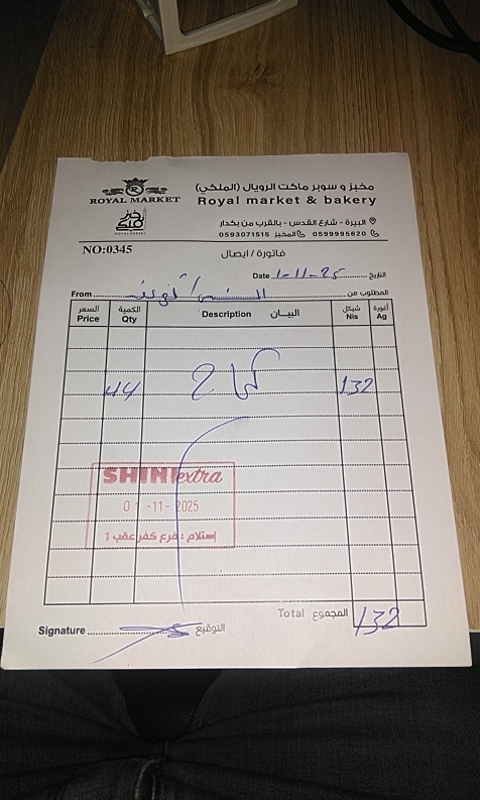 ROYAL MARKET
مخبز و سوبر ماكت الرويال (الملكي)
Royal market & bakery
ROYAL MARKET
البيرة - شارع القدس - بالقرب من بكدار
0599995620 المخبز 0593071515
NO:0345
فاتورة / ايصال
Date 1-11-25 التاريخ
From المطلوب من
السعر الكمية البيــان شيكل أغورة
Price Qty Description Nis Ag
44 132
SHINI extra
01-11-2025
إستلام : فرع كفر عقب 1
Total المجموع 132
Signature التوقيع